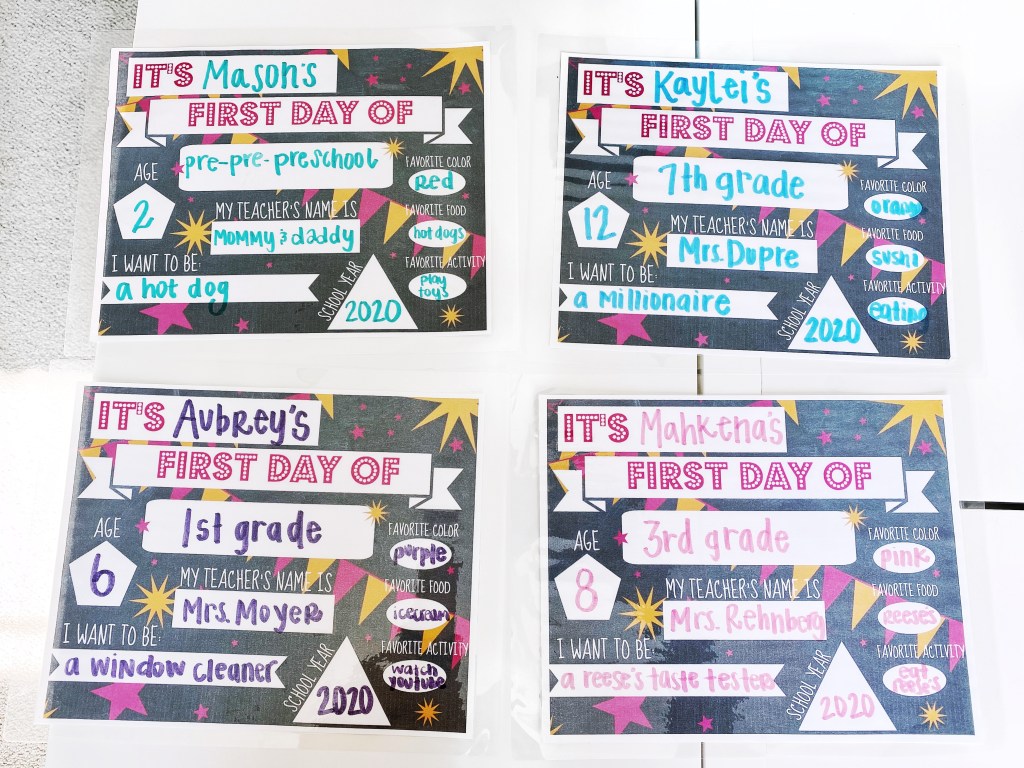 IT'S Mason's
FIRST DAY OF
pre-pre-preschool
AGE
2
FAVORITE COLOR
Red
MY TEACHER'S NAME IS
Mommy & daddy
FAVORITE FOOD
hot dogs
I WANT TO BE:
a hot dog
FAVORITE ACTIVITY
play
toys
SCHOOL YEAR
2020
IT'S Kaylei's
FIRST DAY OF
7th grade
AGE
12
FAVORITE COLOR
orange
MY TEACHER'S NAME IS
Mrs. Dupre
FAVORITE FOOD
sushi
I WANT TO BE:
a millionaire
FAVORITE ACTIVITY
eating
SCHOOL YEAR
2020
IT'S Aubrey's
FIRST DAY OF
1st grade
AGE
6
FAVORITE COLOR
purple
MY TEACHER'S NAME IS
Mrs. Moyer
FAVORITE FOOD
icecream
I WANT TO BE:
a window cleaner
FAVORITE ACTIVITY
watch
youtube
SCHOOL YEAR
2020
IT'S Mahkena's
FIRST DAY OF
3rd grade
AGE
8
FAVORITE COLOR
pink
MY TEACHER'S NAME IS
Mrs. Rehnberg
FAVORITE FOOD
reeses
I WANT TO BE:
a reese's taste tester
FAVORITE ACTIVITY
eat
reese's
SCHOOL YEAR
2020